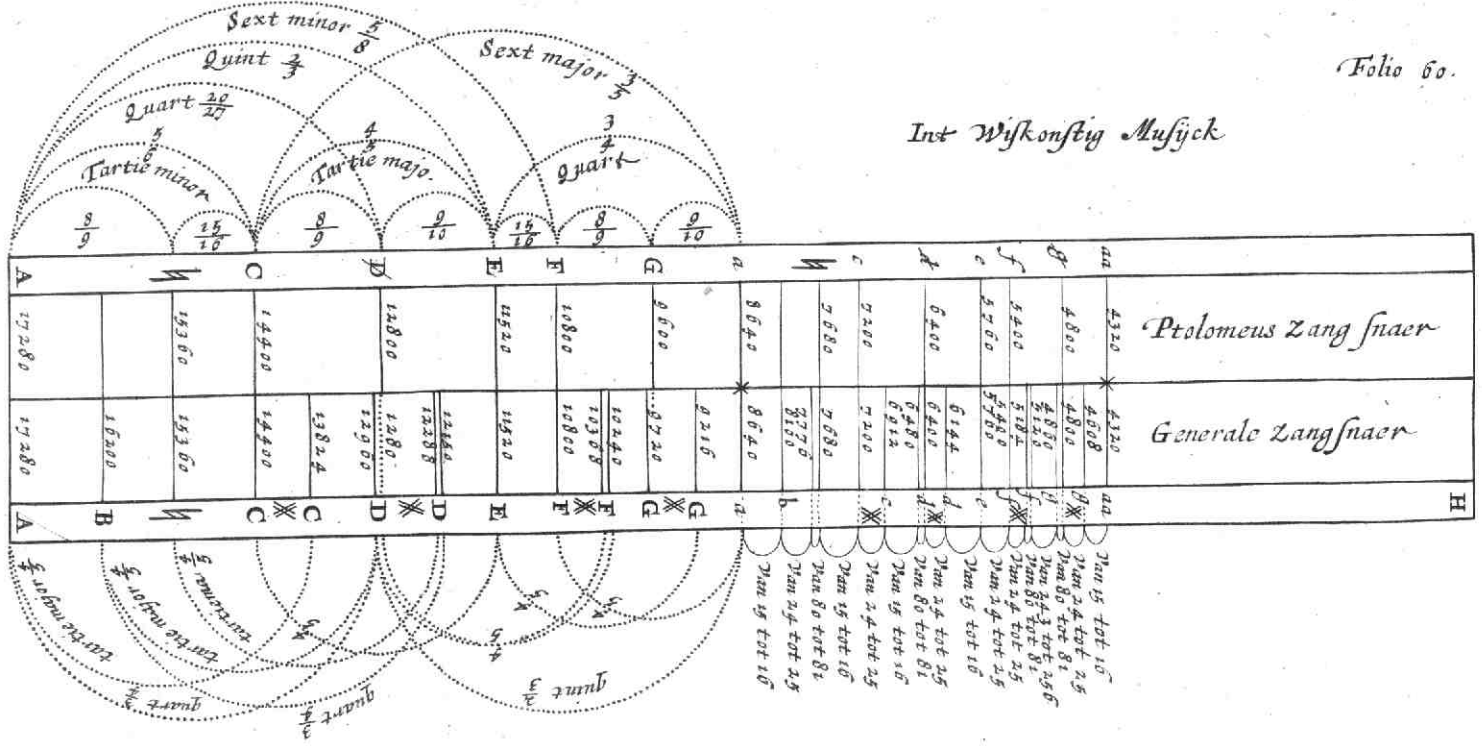 Folio 60.
Int Wiskonstig Musijck
Sext minor 5/8
Quint 2/3
Sext major 3/5
Quart 20/27
5/6
Tartie minor
4/5
Tartie majo.
3/4
Quart
8/9 15/16 8/9 9/10 15/16 8/9 9/10
A ♮ C D E F G a ♮ c d e f g aa
17280 15360 14400 12800 11520 10800 9600 8640 7680 7200 6400 5760 5400 4800 4320
Ptolomeus Zang snaer
17280 16200 15360 14400 13824 12960 1280 12288 12150 11520 10800 10368 10240 9720 9216 8640 8100 7776 7680 7200 6912 6480 6400 6144 5760 5400 5184 4860 4800 4608 4320
Generale Zangsnaer
A B ♮ C C D D E F F G G a b c d d e f f g g aa H
tartie major 5/4
tartie major 5/4
tartiema 5/4
5/4
4/5
5/4
5/4
quart 3/4
quart 3/4
quint 2/3
Van 15 tot 16
Van 24 tot 25
Van 80 tot 81
Van 15 tot 16
Van 24 tot 25
Van 15 tot 16
Van 80 tot 81
Van 24 tot 25
Van 15 tot 16
Van 24 tot 25
Van 24 tot 25
Van 80 tot 81
Van 243 tot 256
Van 80 tot 81
Van 24 tot 25
Van 15 tot 16